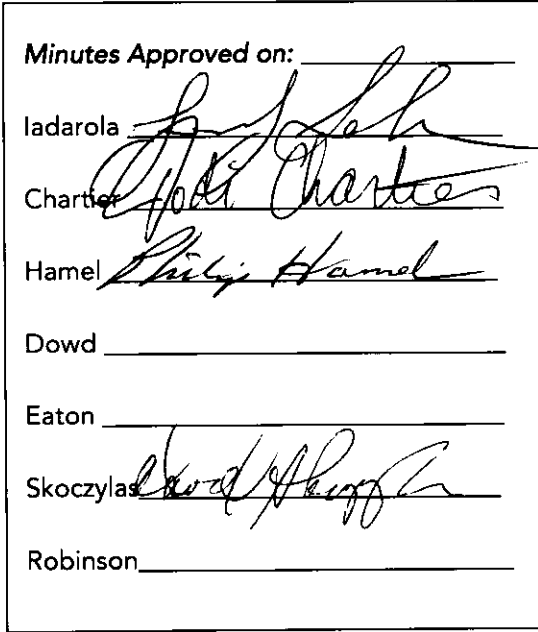 Minutes Approved on:
Iadarola
Chartier Jodi Chartier
Hamel Philip Hamel
Dowd
Eaton
Skoczylas David
Robinson